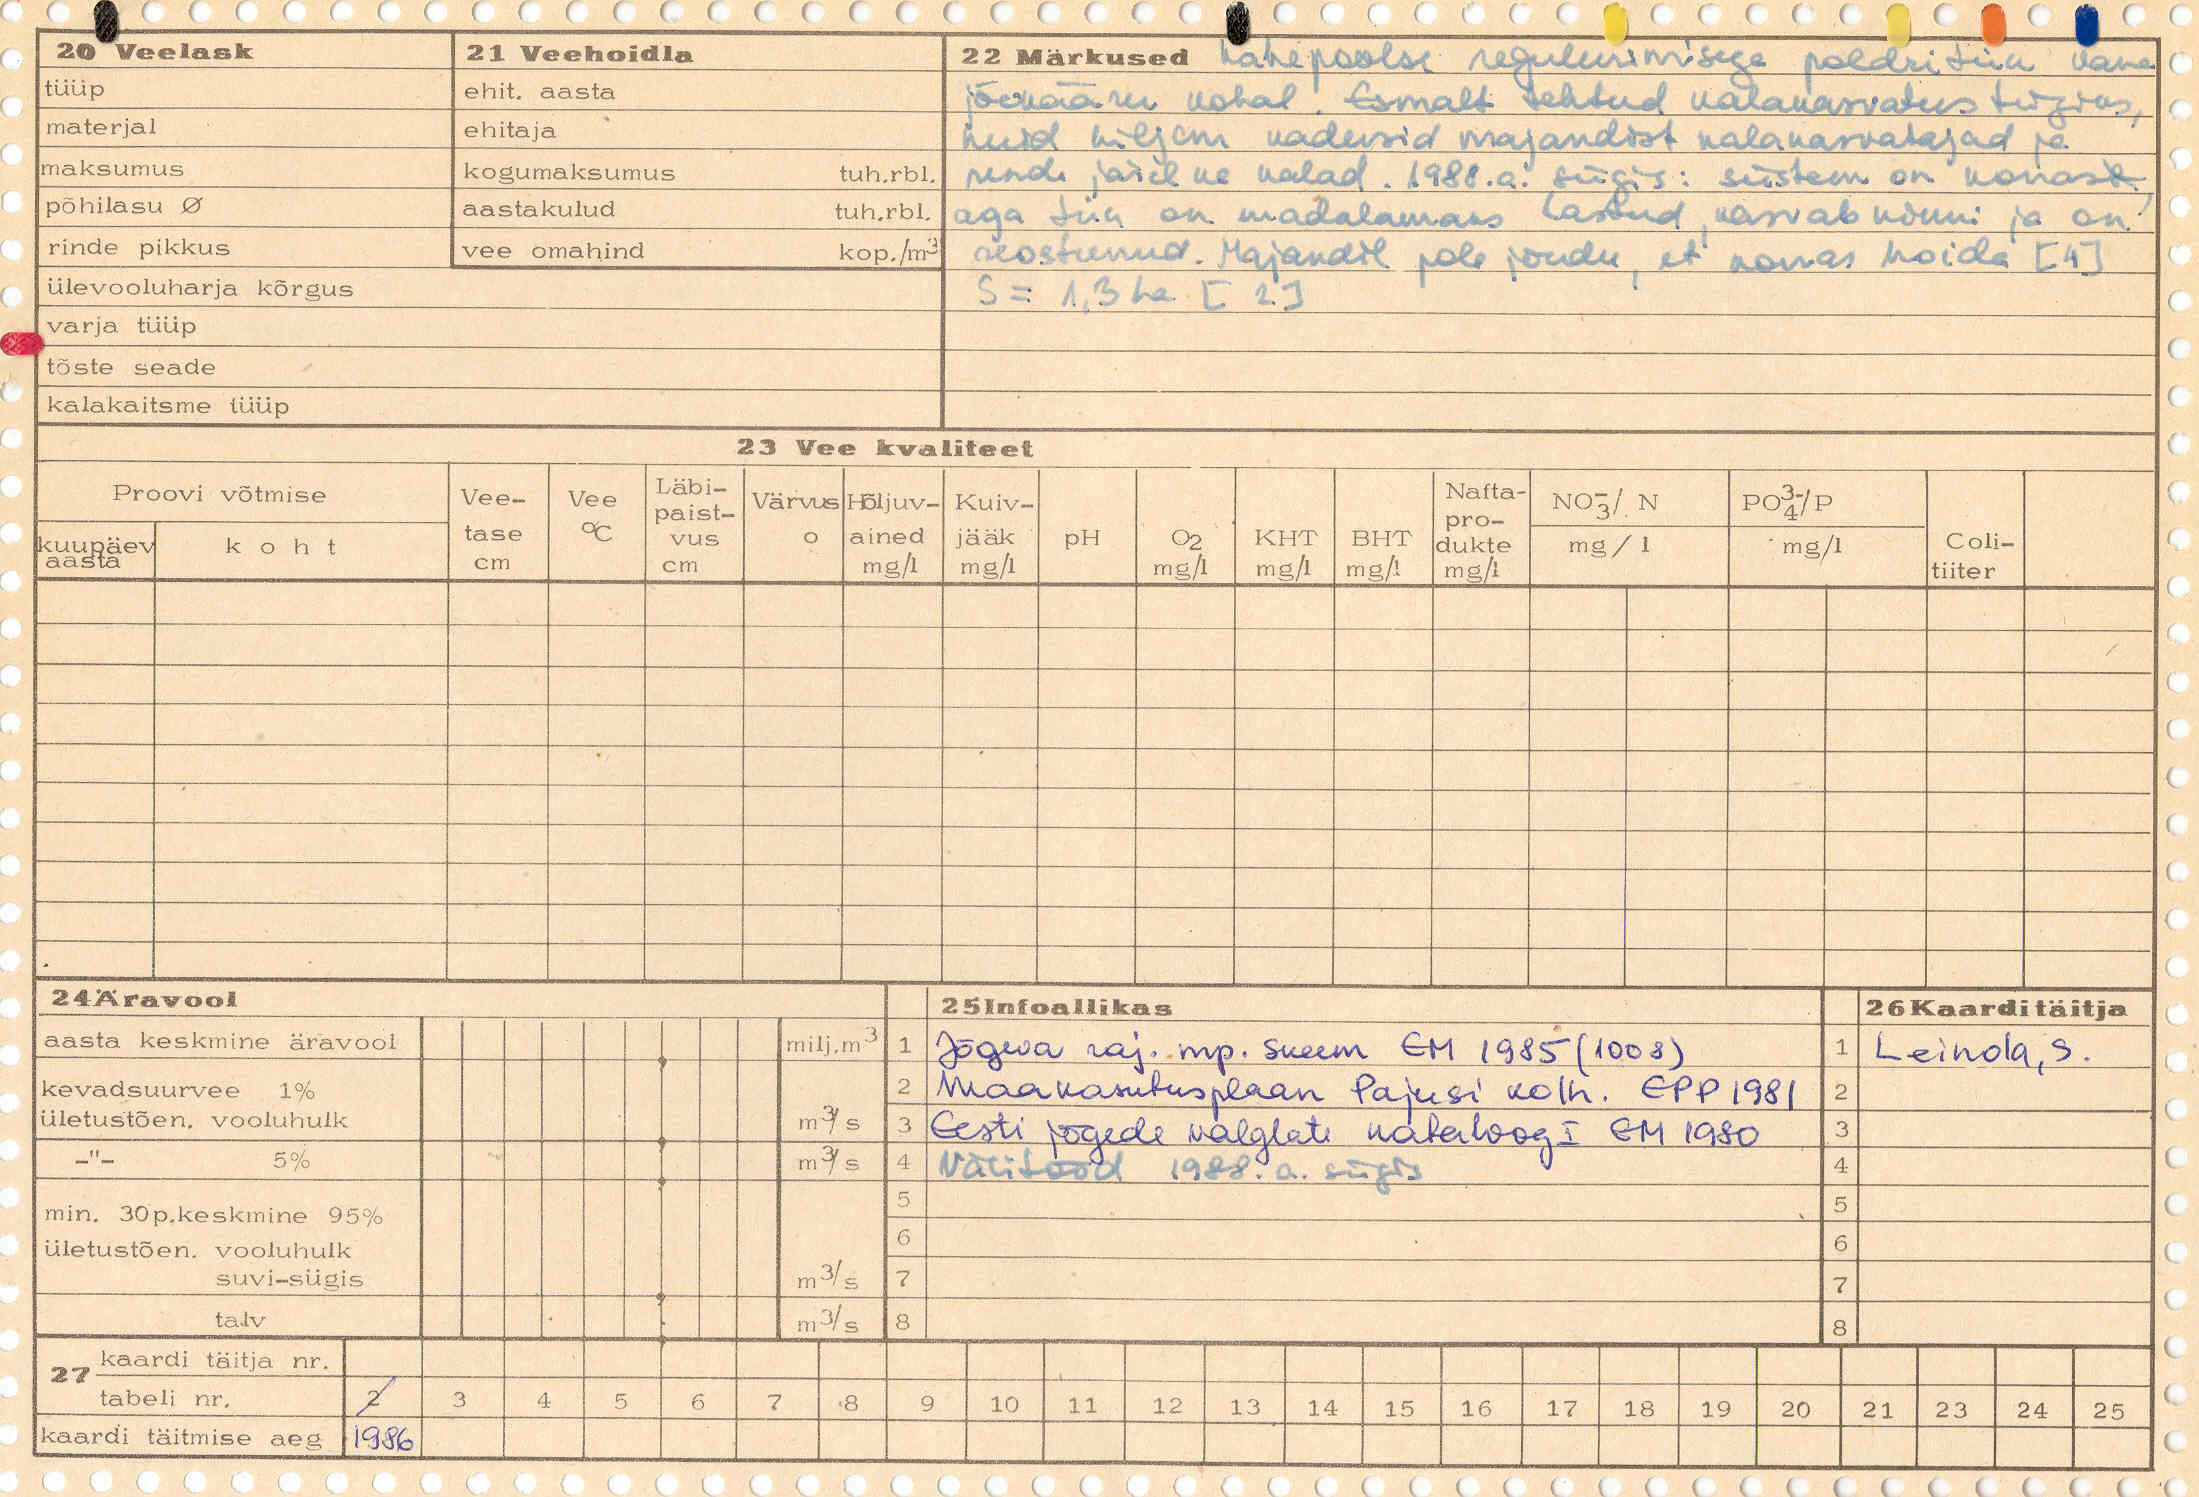 20 Veelask
tüüp
materjal
maksumus
põhilasu Ø
rinde pikkus
ülevooluharja kõrgus
varja tüüp
tõste seade
kalakaitsme tüüp
21 Veehoidla
ehit. aasta
ehitaja
kogumaksumus tuh.rbl.
aastakulud tuh.rbl.
vee omahind kop./m³
22 Märkused Kahepoolse reguleerimisega poldri tiik vana
jõekääru kohal. Esmalt tehtud kalakasvatus tiigiks,
kuid hiljem kadusid majandist kalakasvatajad ja
nende järel ka kalad. 1988.a. sügis: süsteem on korras,
aga tiik on madalamaks lastud, kasvab kinni ja on
reostunud. Majandil pole jõudu, et korras hoida [4]
S = 1,3 ha [2]
23 Vee kvaliteet
Proovi võtmise
kuupäev aasta
koht
Vee-tase cm
Vee °C
Läbi-paist-vus cm
Värvus o
Hõljuv-ained mg/l
Kuiv-jääk mg/l
pH
O₂ mg/l
KHT mg/l
BHT mg/l
Nafta-pro-dukte mg/l
NO₃⁻/N mg/l
PO₄³⁻/P mg/l
Coli-tiiter
24 Äravool
aasta keskmine äravool milj.m³
kevadsuurvee 1%
ületustõen. vooluhulk m³/s
-"- 5% m³/s
min. 30p.keskmine 95%
ületustõen. vooluhulk
suvi-sügis m³/s
talv m³/s
25 Infoallikas
1 Jõgeva raj. mp. skeem EM 1985 (1008)
2 Maakasutusplaan Pajusi kolh. EPP 1981
3 Eesti jõgede valglate kataloog I EM 1980
4 Välitööd 1988.a. sügis
5
6
7
8
26 Kaardi täitja
1 Leinola, S.
2
3
4
5
6
7
8
27 kaardi täitja nr.
tabeli nr. 2 3 4 5 6 7 8 9 10 11 12 13 14 15 16 17 18 19 20 21 23 24 25
kaardi täitmise aeg 1986